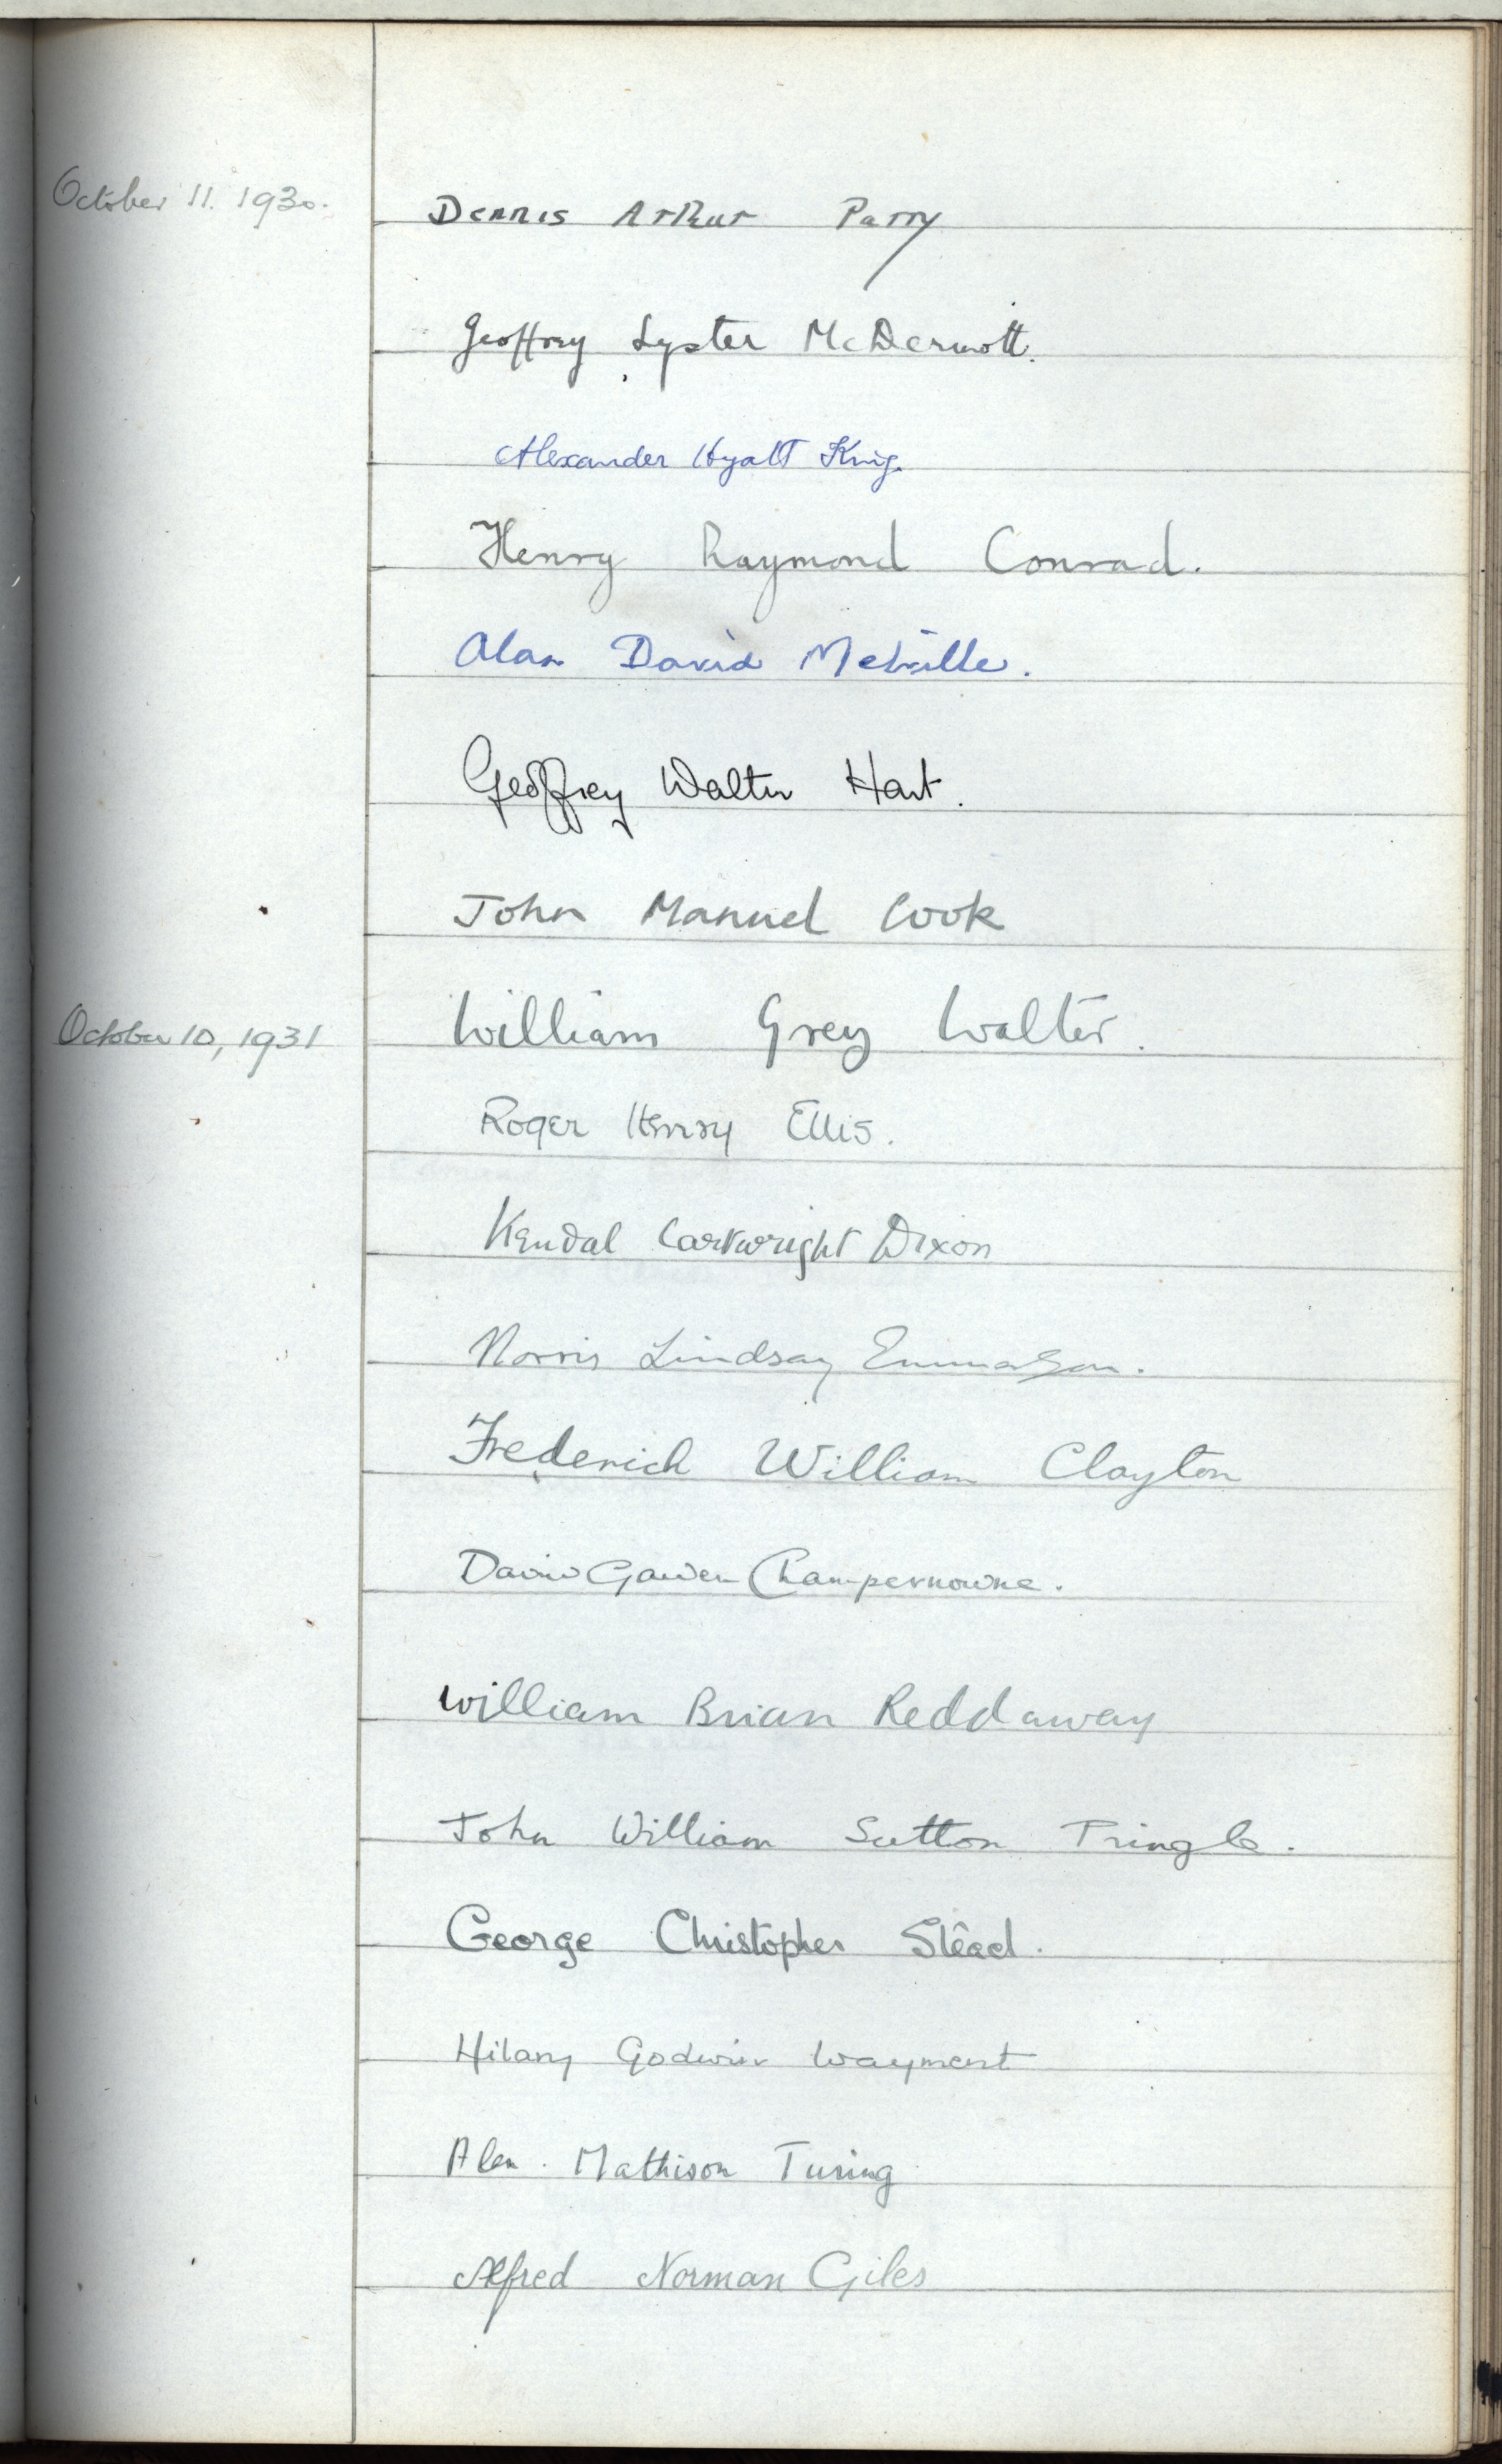 October 11. 1930.
Dennis Arthur Parry
Geoffrey Lyster McDermott.
Alexander Hyatt King.
Henry Raymond Conrad.
Alan David Melville.
Geoffrey Walter Hart.
John Manuel Cook
October 10, 1931
William Grey Walter.
Roger Henry Ellis.
Kendal Cartwright Dixon
Norris Lindsay Emmerson.
Frederick William Clayton
David Gawen Champernowne.
William Brian Reddaway
John William Sutton Pringle.
George Christopher Stead.
Hilary Godwin Wayment
Alan Mathison Turing
Alfred Norman Giles